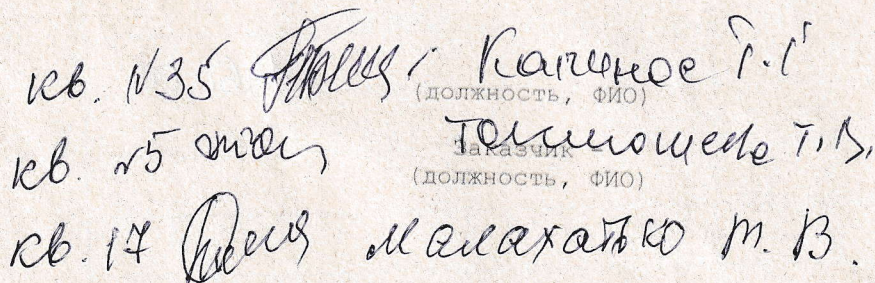 кв. №35 Калинос Г.Г
(должность, ФИО)
кв. №5 Т.В.
Заказчик -
(должность, ФИО)
кв. 17 Малахатько Т. В.